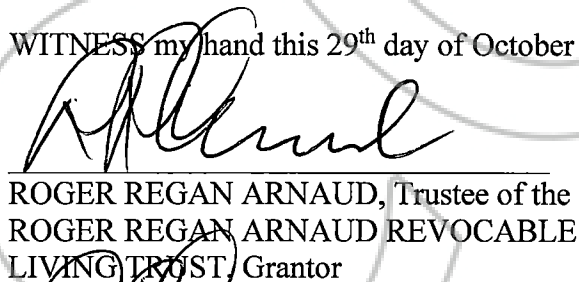 WITNESS my hand this 29th day of October
ROGER REGAN ARNAUD, Trustee of the
ROGER REGAN ARNAUD REVOCABLE
LIVING TRUST, Grantor